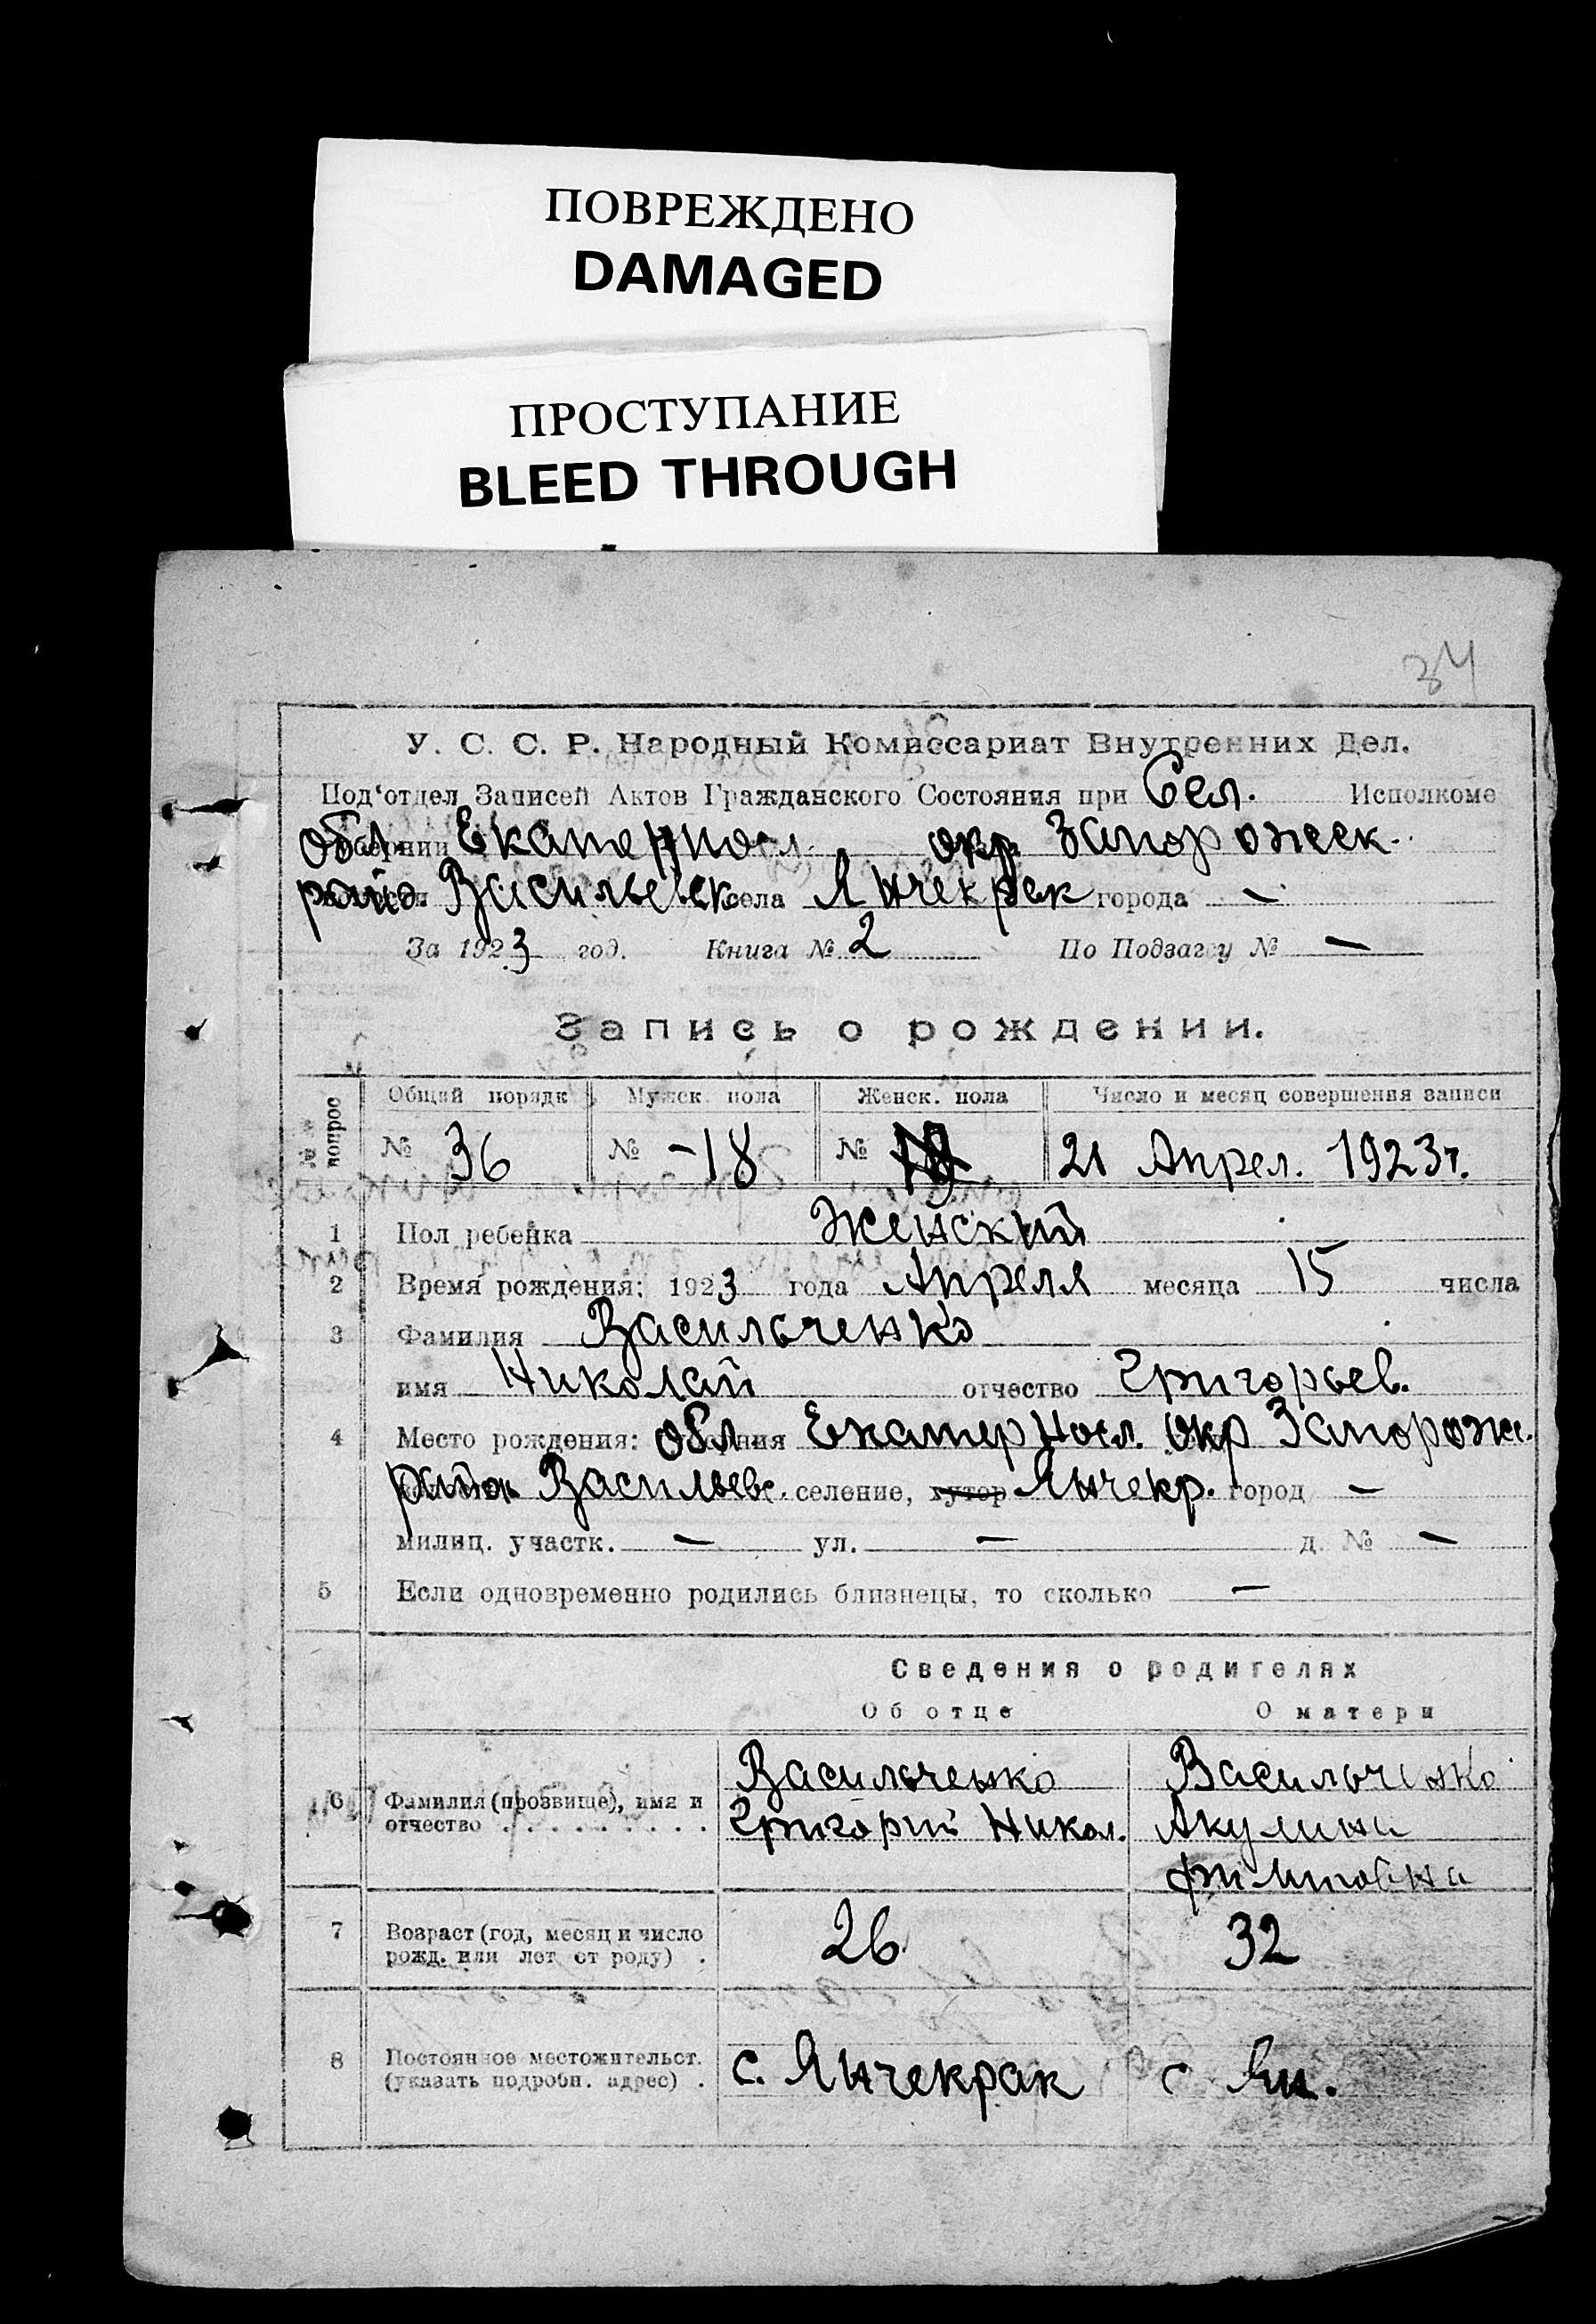 ПОВРЕЖДЕНО
DAMAGED
ПРОСТУПАНИЕ
BLEED THROUGH
34
У. С. С. Р. Народный Комиссариат Внутренних Дел.
Под‘отдел Записей Актов Гражданского Состояния при Сел. Исполкоме
обл. Екатерносл. окр Запорожеск.
район. Васильевск села Янчекрек города —
За 1923 год. Книга № 2 По Подзагсу № —
Запись о рождении.
№№ вопрос
Общий порядк Мужск. пола Женск. пола Число и месяц совершения записи
№ 36 № -18 № 21 Апрел. 1923 г.
1 Пол ребенка Женский
2 Время рождения: 1923 года Апреля месяца 15 числа
3 Фамилия Васильченко
имя Николай отчество Григорьев.
4 Место рождения: обл. Екатерносл. окр Запорож.
район Васильевс. селение, хутор Янчекр. город —
милиц. участк. — ул. — д. № —
5 Если одновременно родились близнецы, то сколько —
Сведения о родителях
Об отце О матери
Васильченко Васильченко
6 Фамилия (прозвище), имя и отчество Григорий Никол. Акулина
7 Возраст (год, месяц и число рожд. или лет от роду) . 26 32
8 Постоянное местожительст. (указать подробн. адрес) . с. Янчекрак с Ян.